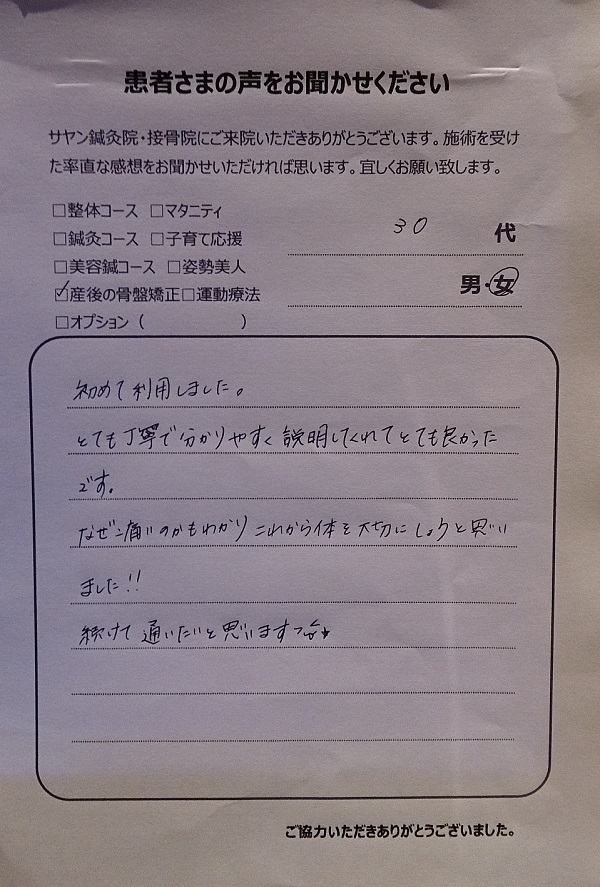 患者さまの声をお聞かせください
サヤン鍼灸院・接骨院にご来院いただきありがとうございます。施術を受け
た率直な感想をお聞かせいただければ思います。宜しくお願い致します。
□整体コース □マタニティ
□鍼灸コース □子育て応援
□美容鍼コース □姿勢美人
☑産後の骨盤矯正□運動療法
□オプション（ ）
30 代
男・女
初めて利用しました。
とても丁寧で分かりやすく説明してくれてとても良かった
です。
なぜ痛いのかもわかりこれから体を大切にしようと思い
ました!!
続けて通いたいと思います
ご協力いただきありがとうございました。